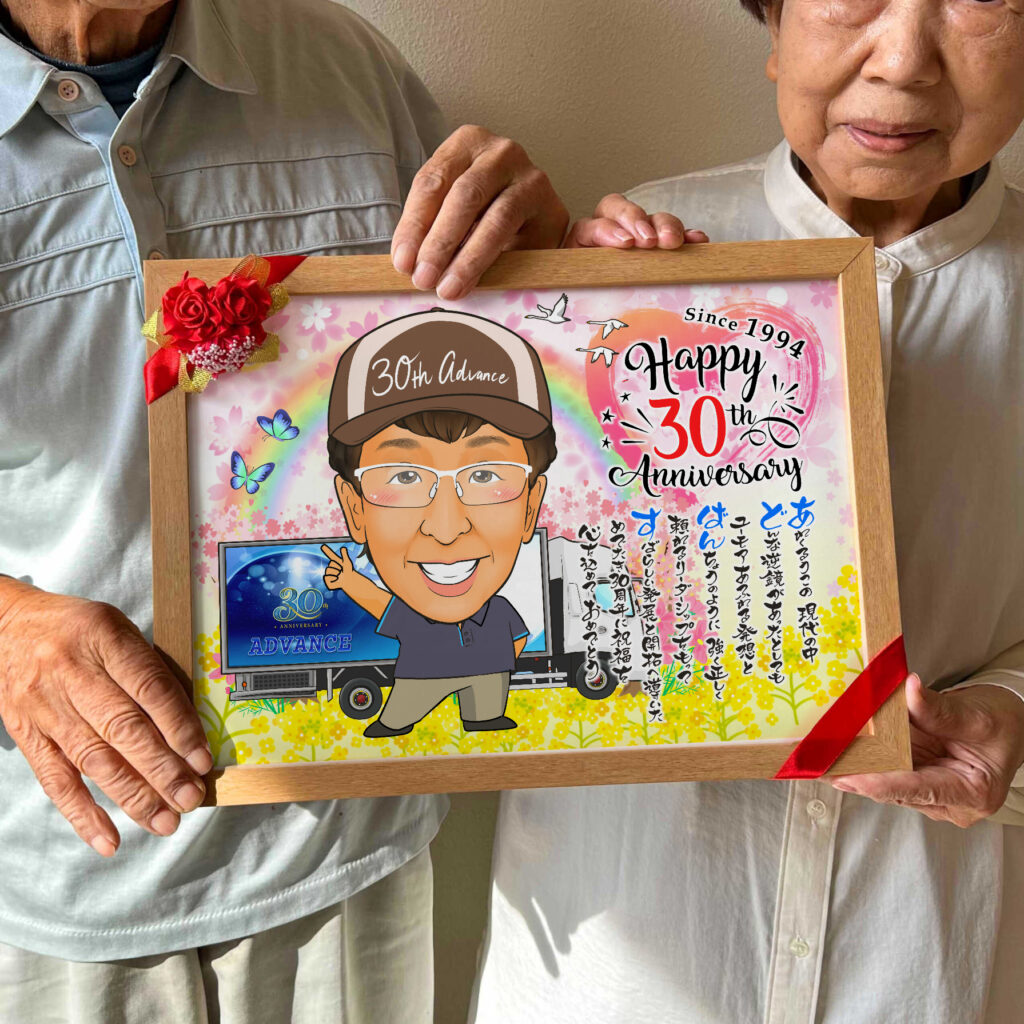 30th Advance
Since 1994
Happy
30th
Anniversary
あれくるうこの 現代の中
どんな逆鏡があったとしても
ユーモアあふれる発想と
ばんちょうのように 強く正しく
頼れるリーダーシップをもって
すばらしい発展と開拓へ導いた
めでたき30周年に祝福を
心を込めて おめでとう
30th
ANNIVERSARY
ADVANCE